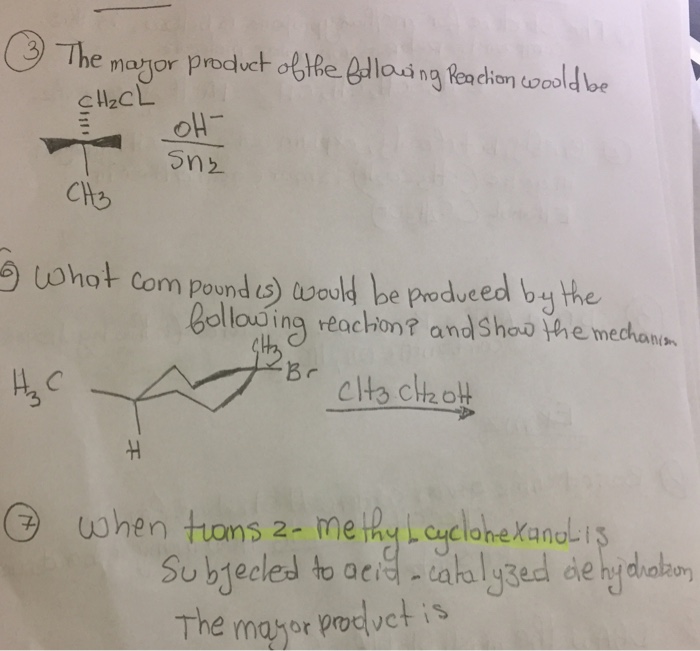 ③ The mayor product of the following Reaction woold be
CH2CL
OH-
Sn2
CH3
⑥ What compound(s) would be produced by the
following reaction? and show the mechanism
CH3
H3C
Br
CH3 CH2OH
H
⑦ When trans 2-methyL cyclohexanoL is
Subjected to acid-catalyzed dehydration
The mayor product is